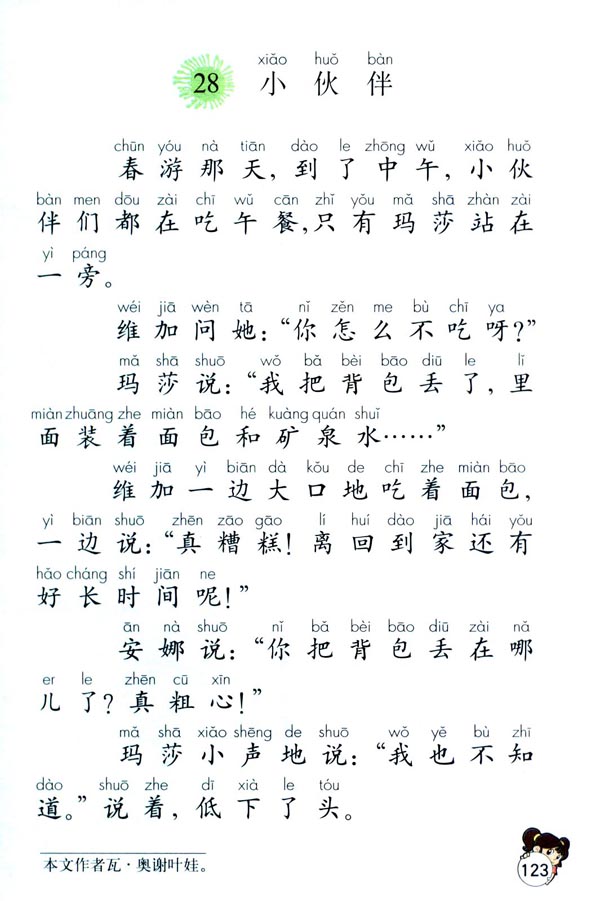 xiǎo huǒ bàn
28 小伙伴
chūn yóu nà tiān dào le zhōng wǔ xiǎo huǒ
春游那天，到了中午，小伙
bàn men dōu zài chī wǔ cān zhǐ yǒu mǎ shā zhàn zài
伴们都在吃午餐，只有玛莎站在
yì páng
一旁。
wéi jiā wèn tā nǐ zěn me bù chī ya
维加问她：“你怎么不吃呀？”
mǎ shā shuō wǒ bǎ bèi bāo diū le lǐ
玛莎说：“我把背包丢了，里
miàn zhuāng zhe miàn bāo hé kuàng quán shuǐ
面装着面包和矿泉水……”
wéi jiā yì biān dà kǒu de chī zhe miàn bāo
维加一边大口地吃着面包，
yì biān shuō zhēn zāo gāo lí huí dào jiā hái yǒu
一边说：“真糟糕！离回到家还有
hǎo cháng shí jiān ne
好长时间呢！”
ān nà shuō nǐ bǎ bèi bāo diū zài nǎ
安娜说：“你把背包丢在哪
er le zhēn cū xīn
儿了？真粗心！”
mǎ shā xiǎo shēng de shuō wǒ yě bù zhī
玛莎小声地说：“我也不知
dào shuō zhe dī xià le tóu
道。”说着，低下了头。
本文作者瓦·奥谢叶娃。
123